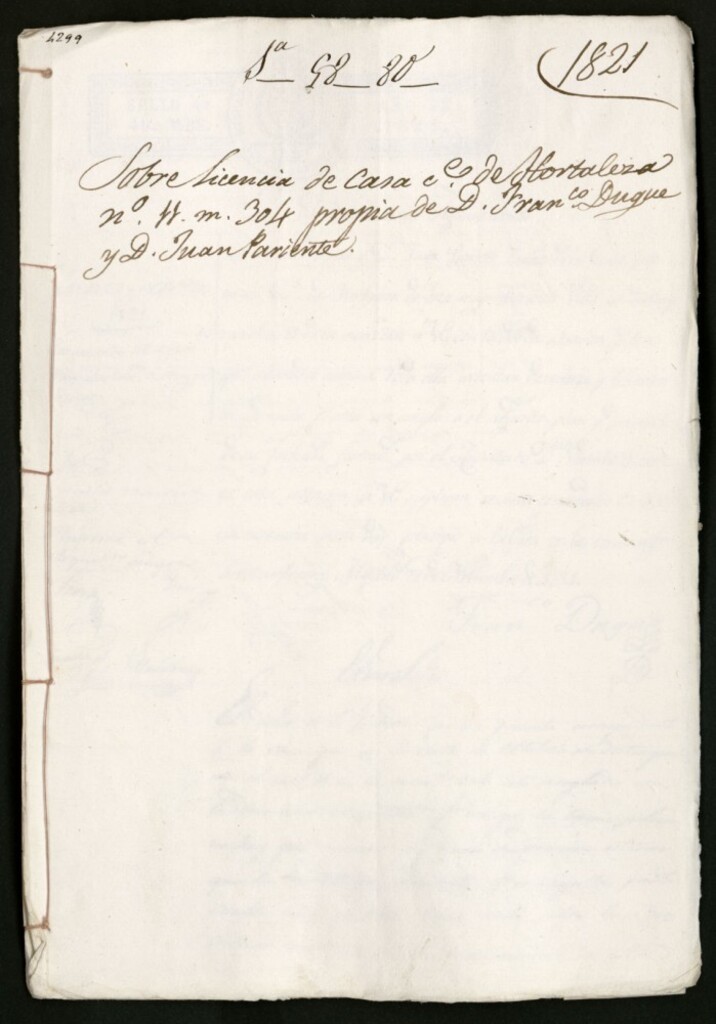 4299
1ª_ 58_ 80_
1821
Sobre licencia de Casa c.e de Hortaleza
nº. 11. m. 304 propia de D. Fran.co Duque
y D. Juan Pariente.